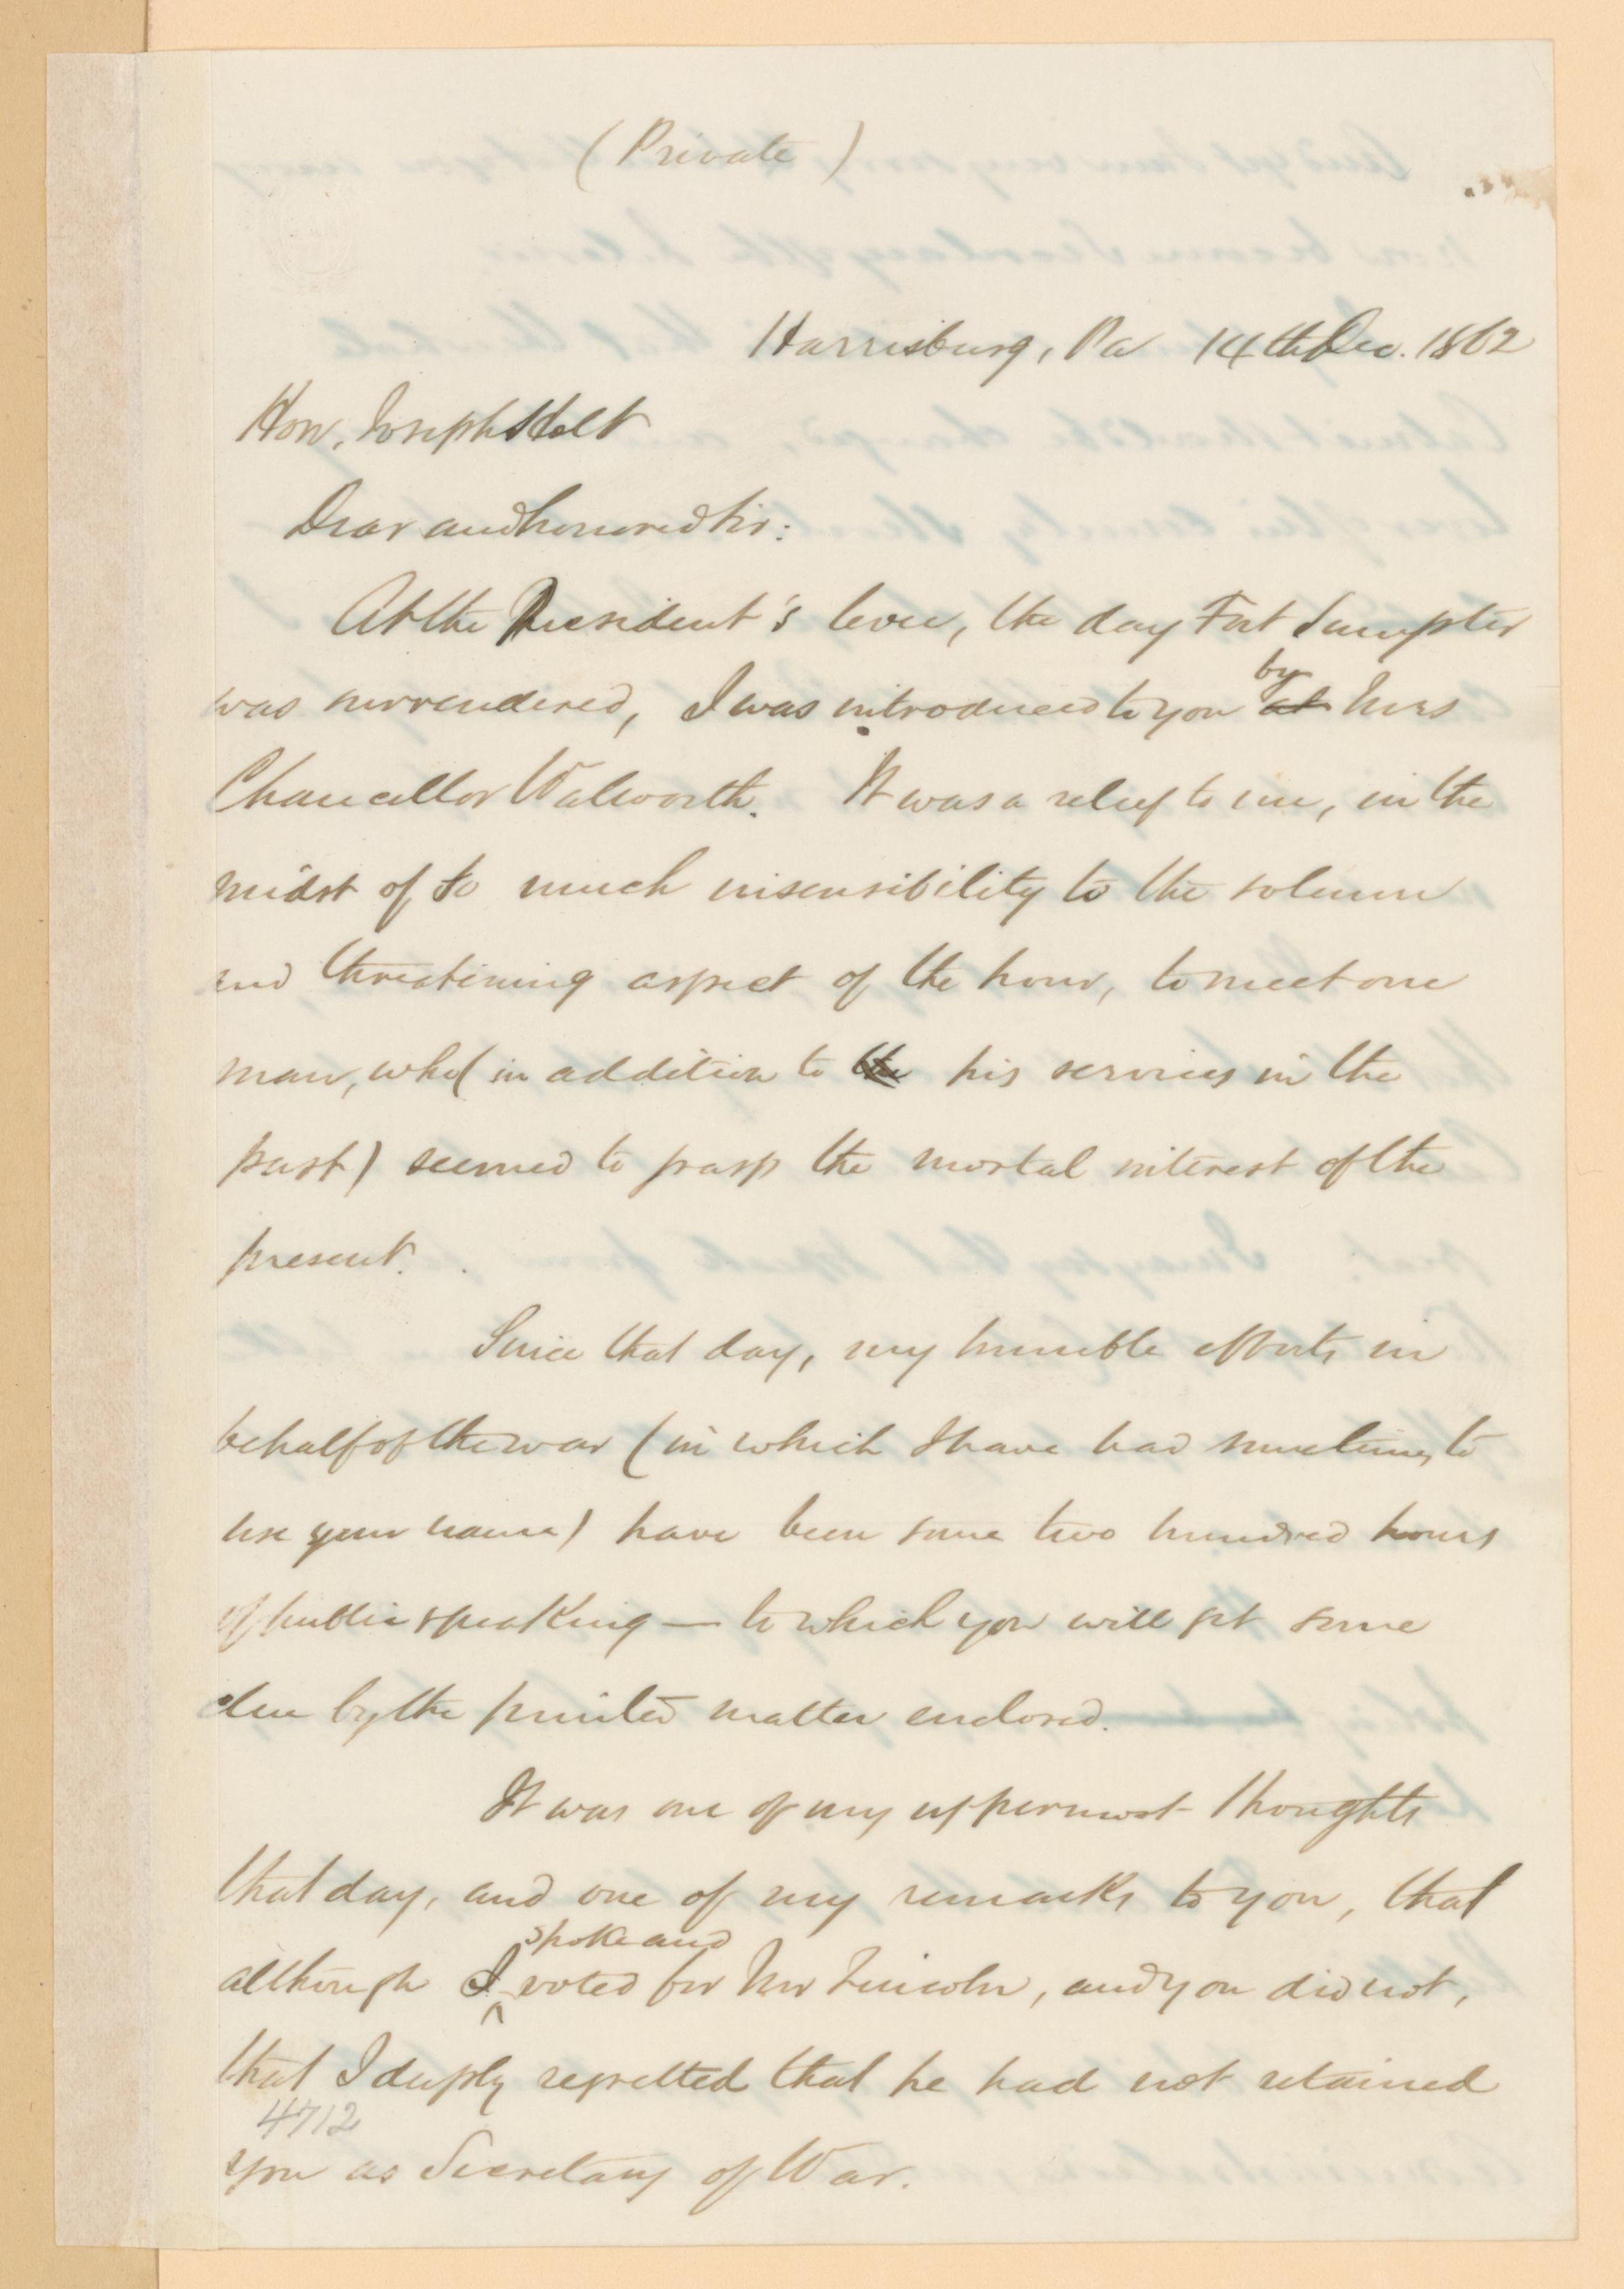 (Private)
Harrisburg, Pa 14th Dec. 1862
Hon. Joseph Holt
Dear and honored Sir:
At the President's levee, the day Fort Sumpter
was surrendered, I was introduced to you by at Mrs
Chancellor Walworth. It was a relief to me, in the
midst of so much insensibility to the solemn
and threatening aspect of the hour, to meet one
man, who (in addition to the his services in the
past) seemed to grasp the mortal interest of the
present.
Since that day, my humble efforts in
behalf of the war (in which I have had sometimes to
use your name) have been some two hundred hours
of public speaking — to which you will get some
clue by the printed matter enclosed.
It was one of my uppermost thoughts
that day, and one of my remarks to you, that
although I spoke and voted for Mr Lincoln, and you did not,
that I deeply regretted that he had not retained
4712
you as Secretary of War.